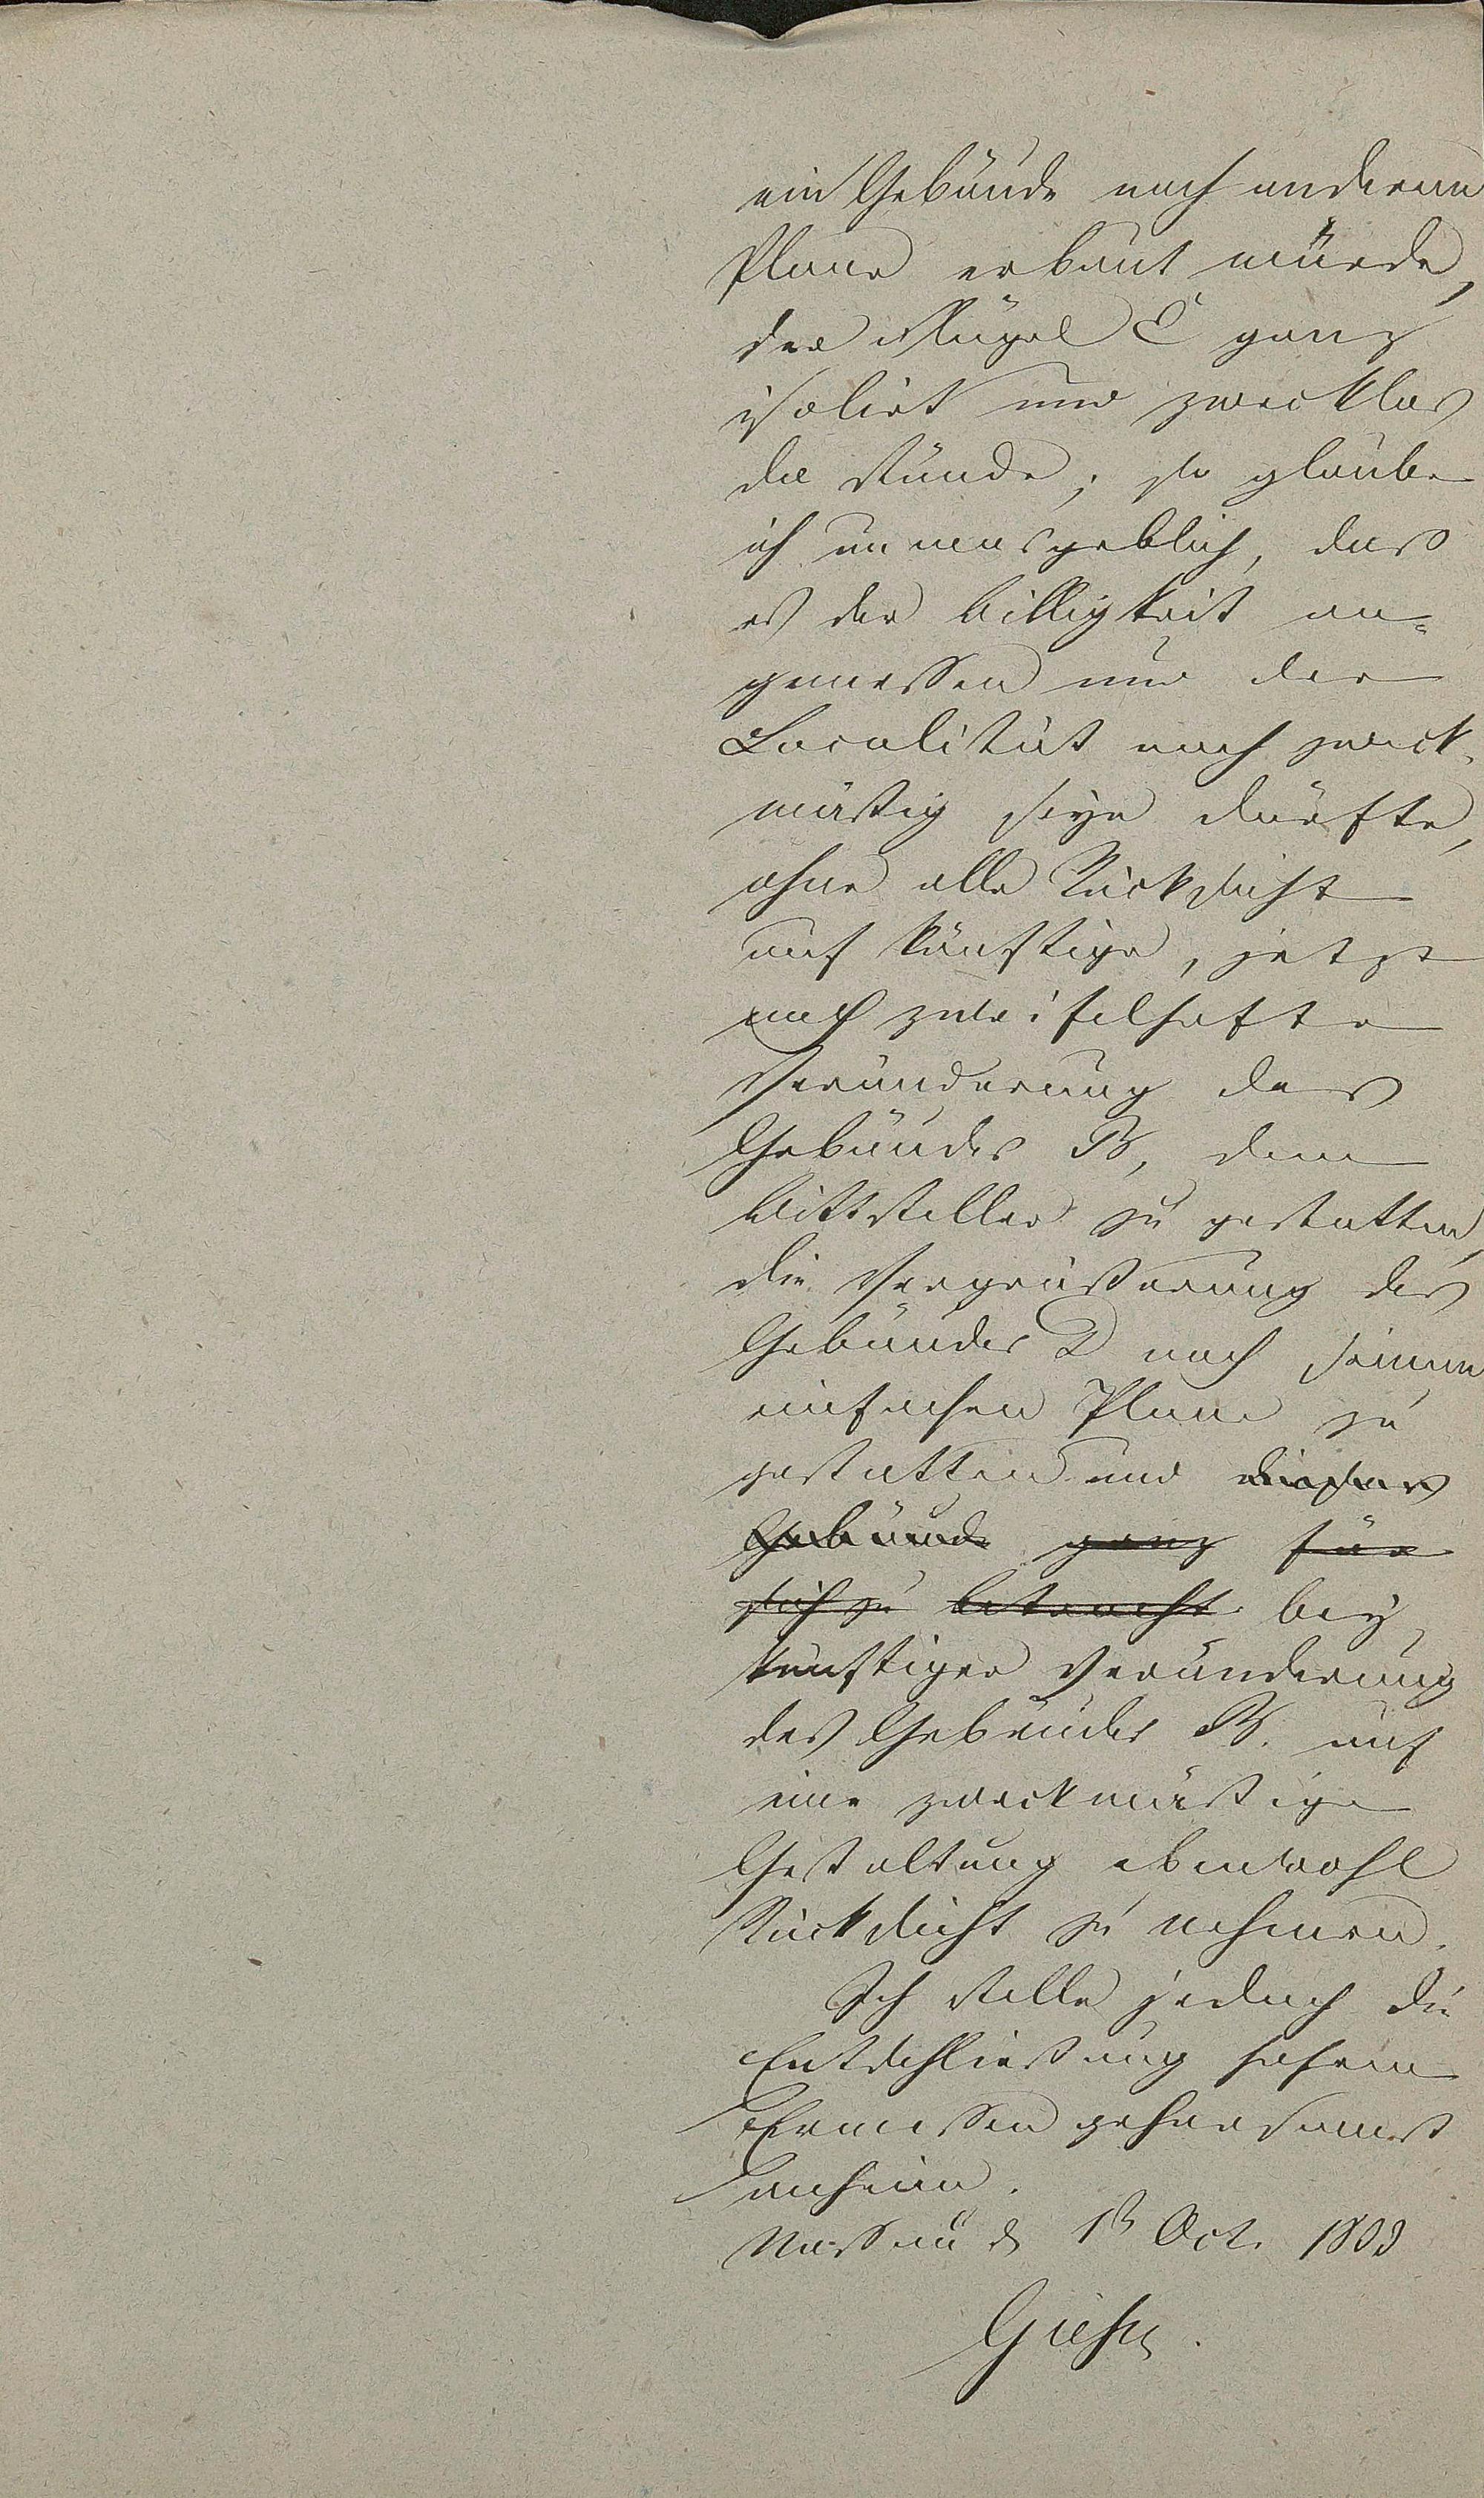 ein Gebäude nach anderem
Plane erbaut würde,
der Flügel C ganz
isolirt und zwecklos
da stünde; so glaube
ich unmasgeblich, dass
es der Billigkeit an-
gemessen und der
Localität nach zweck-
mäßig seyn dürfte,
ohne alle Rücksicht
auf künftige, jetzt
noch zweifelhafte
Veränderung des
Gebäudes B, dem
Bittsteller zu gestatten,
die Vergrößerung des
Gebäudes D nach seinem
einfachen Plane zu
gestatten und dieses
Gebäude ganz für
sich zu betracht bey
künftiger Veränderung
des Gebäudes B. auf
eine zweckmäßige
Gestaltung ebenwohl
Rücksicht zu nehmen.
Ich stelle jedoch die
Entschließung hohem
Ermessen gehorsamst
anheim.
Nassau d Oct.